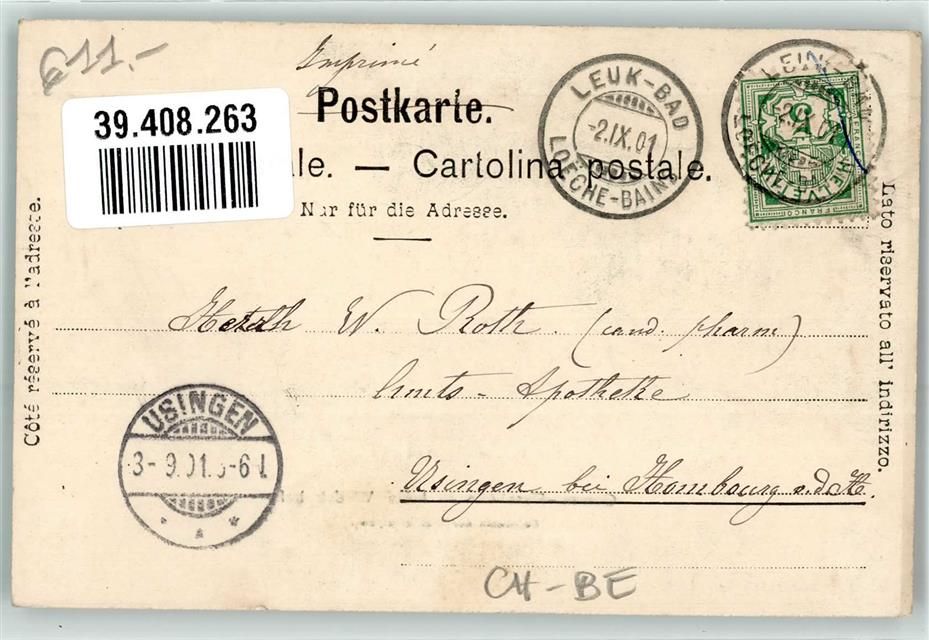 €11.-
Imprimé
39.408.263
Postkarte.
ale. — Cartolina postale.
Nur für die Adresse.
LEUK-BAD
-2.IX.01
LOECHE-BAINS
5
HELVETIA
FRANCO
Côté réservé à l'adresse.
Lato riservato all' indirizzo.
W. Roth. (cand. pharm)
Amts-Apotheke
Usingen bei Hombourg v.d.H.
USINGEN
3-9.01. 5-6
CH-BE